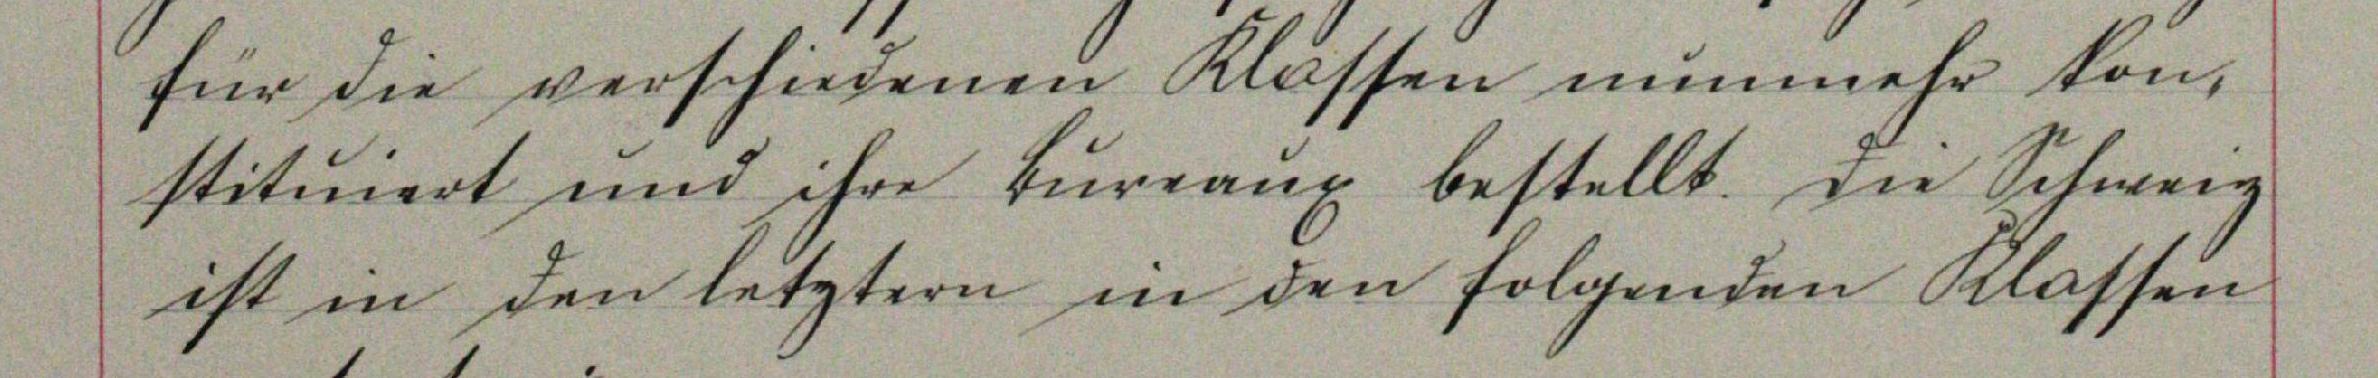 für die verschiedenen Klassen nunmehr kon-
stituiert und ihre Bureaux bestellt. Die Schweiz
ist in den letztern in den folgenden Klassen